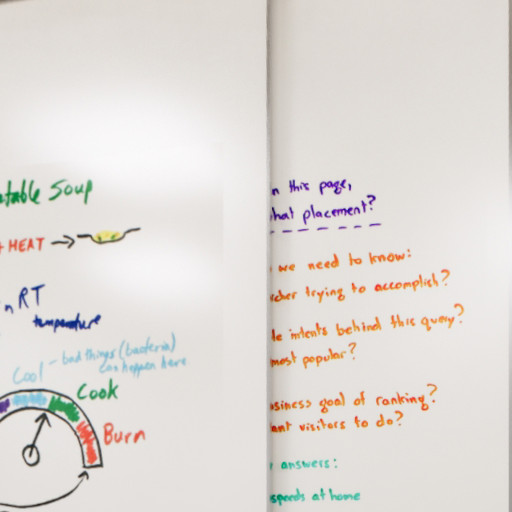 table Soup
+ HEAT →
nRT
temperature
Cool - bad things (bacteria)
can happen here.
Cook
Burn
n this page,
hat placement?
we need to know:
cher trying to accomplish?
le intents behind this query?
most popular?
siness goal of ranking?
ant visitors to do?
answers:
speeds at home